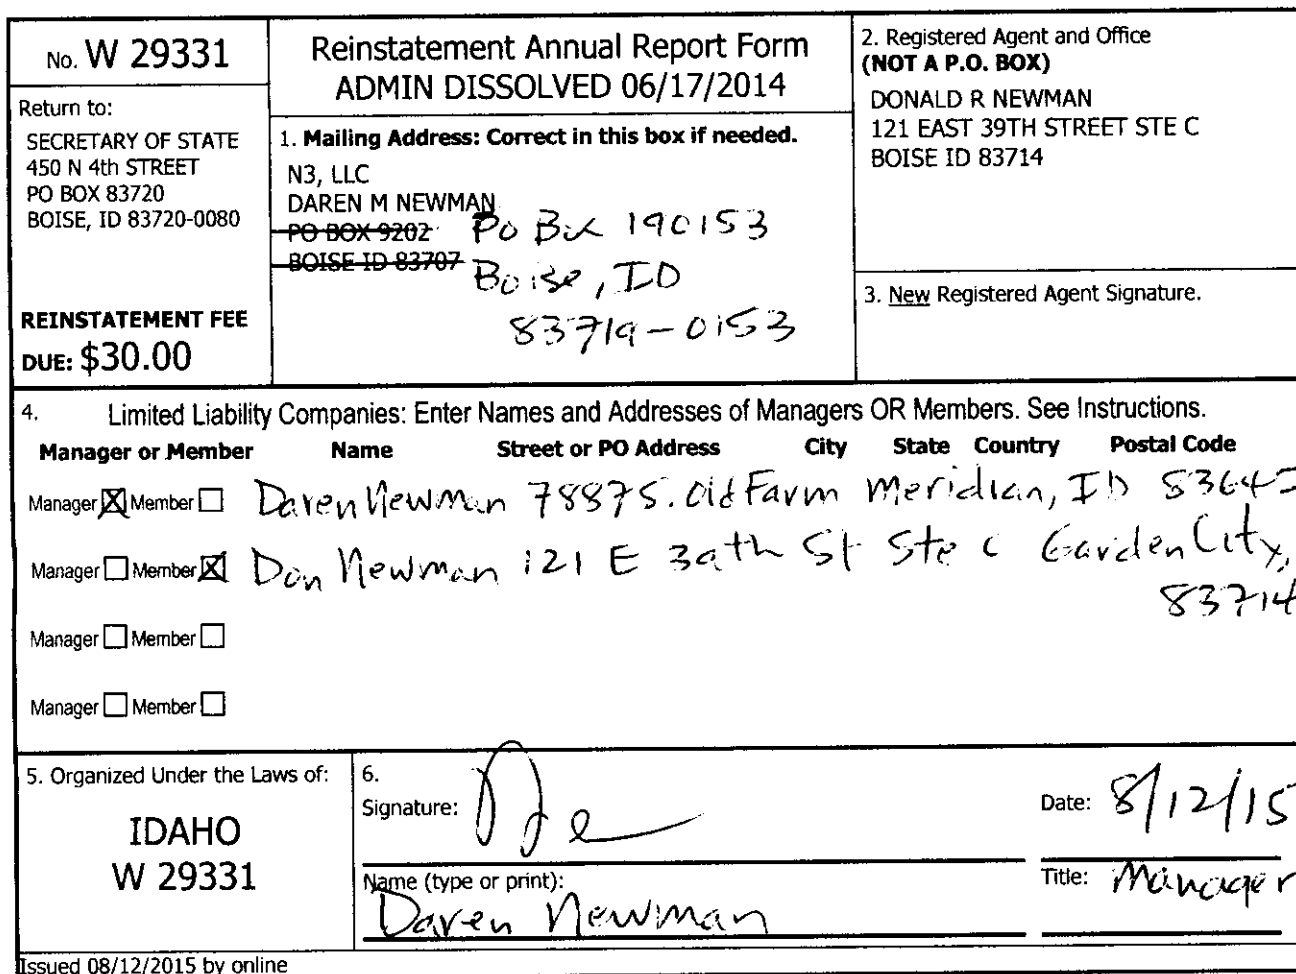 No. W 29331
Return to:
SECRETARY OF STATE
450 N 4th STREET
PO BOX 83720
BOISE, ID 83720-0080
REINSTATEMENT FEE
DUE: $30.00
Reinstatement Annual Report Form
ADMIN DISSOLVED 06/17/2014
1. Mailing Address: Correct in this box if needed.
N3, LLC
DAREN M NEWMAN
PO BOX 9202 Po Box 190153
BOISE ID 83707 Boise, ID
83719-0153
2. Registered Agent and Office
(NOT A P.O. BOX)
DONALD R NEWMAN
121 EAST 39TH STREET STE C
BOISE ID 83714
3. New Registered Agent Signature.
4. Limited Liability Companies: Enter Names and Addresses of Managers OR Members. See Instructions.
Manager or Member Name Street or PO Address City State Country Postal Code
Manager Member Daren Newman 7887 S. Old Farm Meridian, ID 83642
Manager Member Don Newman 121 E 39th St Ste C Garden City,
83714
Manager Member
Manager Member
5. Organized Under the Laws of:
IDAHO
W 29331
6.
Signature:
Date: 8/12/15
Name (type or print):
Daren Newman
Title: Manager
Issued 08/12/2015 by online